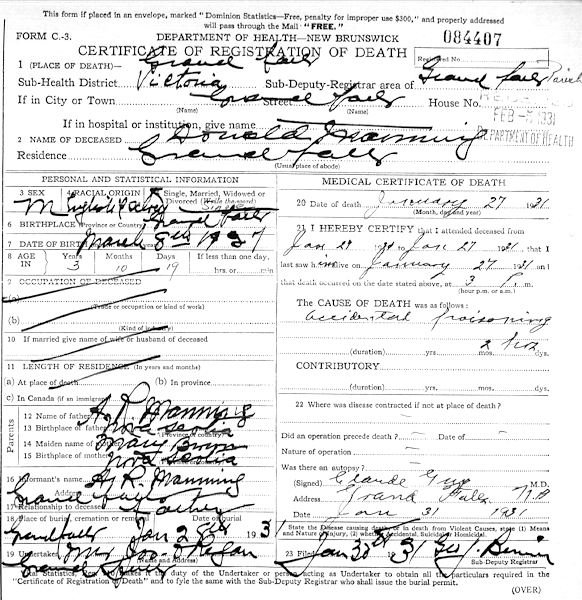 This form if placed in an envelope, marked "Dominion Statistics—Free, penalty for improper use $300," and properly addressed
will pass through the Mail "FREE."
FORM C.-3. DEPARTMENT OF HEALTH—NEW BRUNSWICK 084407
CERTIFICATE OF REGISTRATION OF DEATH Registered No.
1 (PLACE OF DEATH)— Grand Falls
Sub-Health District Victoria Sub-Deputy-Registrar area of Grand Falls Parish
If in City or Town Grand Falls Street House No.
(Name) (Name)
FEB 1931
DEPARTMENT OF HEALTH
If in hospital or institution, give name
2 NAME OF DECEASED Donald Manning
Residence Grand Falls
(Usual place of abode)
PERSONAL AND STATISTICAL INFORMATION
3 SEX 4 RACIAL ORIGIN 5 Single, Married, Widowed or Divorced (Write the word)
M English Single
6 BIRTHPLACE (Province or Country) Grand Falls
7 DATE OF BIRTH March 8th 1927
8 AGE IN Years Months Days If less than one day,
3 10 19 hrs. or min.
9 OCCUPATION OF DECEASED
(a)
(Trade or occupation or kind of work)
(b)
(Kind of industry)
10 If married give name of wife or husband of deceased
11 LENGTH OF RESIDENCE (In years and months)
(a) At place of death (b) In province
(c) In Canada (if an immigrant)
Parents
12 Name of father A. R. Manning
13 Birthplace of father Nova Scotia
(Province or country)
14 Maiden name of mother Mary Brown
15 Birthplace of mother Nova Scotia
16 Informant's name A. R. Manning
Address Grand Falls
17 Relationship to deceased Father
18 Place of burial, cremation or removal Date of burial
Grand Falls Jan 28th 1931
19 Undertaker Mrs Jos. O'Regan
(Name and Address)
Grand Falls
MEDICAL CERTIFICATE OF DEATH
20 Date of death January 27 1931
(Month, day and year)
21 I HEREBY CERTIFY that I attended deceased from
Jan 27 to Jan 27 1931, that I
last saw him alive on January 27 1931 and
that death occurred on the date stated above, at 3 P. m.
(hour p.m. or a.m.)
The CAUSE OF DEATH was as follows:
accidental poisoning
2 hrs
(duration) yrs. mos. dys.
CONTRIBUTORY
(duration) yrs. mos. dys.
22 Where was disease contracted if not at place of death?
Did an operation precede death? Date of
Nature of operation
Was there an autopsy?
(Signed) Claude M.D.
Address Grand Falls N.B
Date Jan 31 1931
State the Disease causing death, or in death from Violent Causes, state (1) Means and Nature of Injury, (2) whether Accidental, Suicidal or Homicidal.
23 Filed Jan 31
Sub-Deputy Registrar
Vital Statistics, Rules, makes it the duty of the Undertaker or person acting as Undertaker to obtain all the particulars required in the
"Certificate of Registration of Death" and to fyle the same with the Sub-Deputy Registrar who shall issue the burial permit.
(OVER)